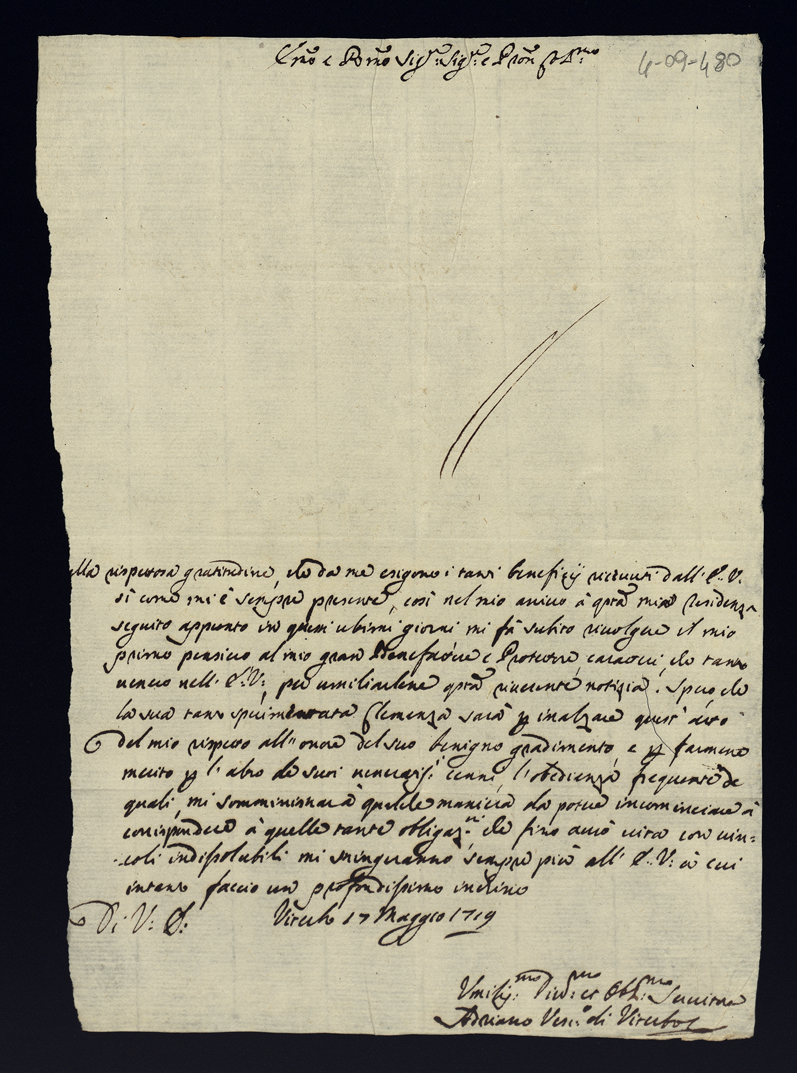 Em̃o e Rm̃o Sig.r Sig.r e Pron̄ Col.mo
4-09-480
Alla rispetosa gratitudine, che da me esigono i tanti beneficij ricevuti dall' E. V.
si come mi è sempre presente, così nel mio arrivo à q̃sta mia residenza
seguito appunto in questi ultimi giorni mi fà subito rivolgere il mio
primo pensiero al mio gran Benefatore e Protettore, che tanto
venero nell' E. V., per umiliarlene q̃sta riverente notizia. Spero che
la sua tanto sperimentata Clemenza sarà p inalzare quest' atto
del mio rispetto all' onore del suo benigno gradimento, e p farmene
merito p l' altro de suoi veneratis.i cenni, l' obedienza frequente de
quali, mi somministrarà qualche maniera da poter incominciare à
corrispondere à quelle tante obligaz.ni che fino avrò vita con vin=
coli indissolubili mi stringeranno sempre più all' E. V. à cui
intanto faccio un profondissimo inchino
Di V: E: Viterbo 17 Maggio 1719
Umilis.mo Div.mo et Obl.mo Servitore
Adriano Vesc.o di Viterbo